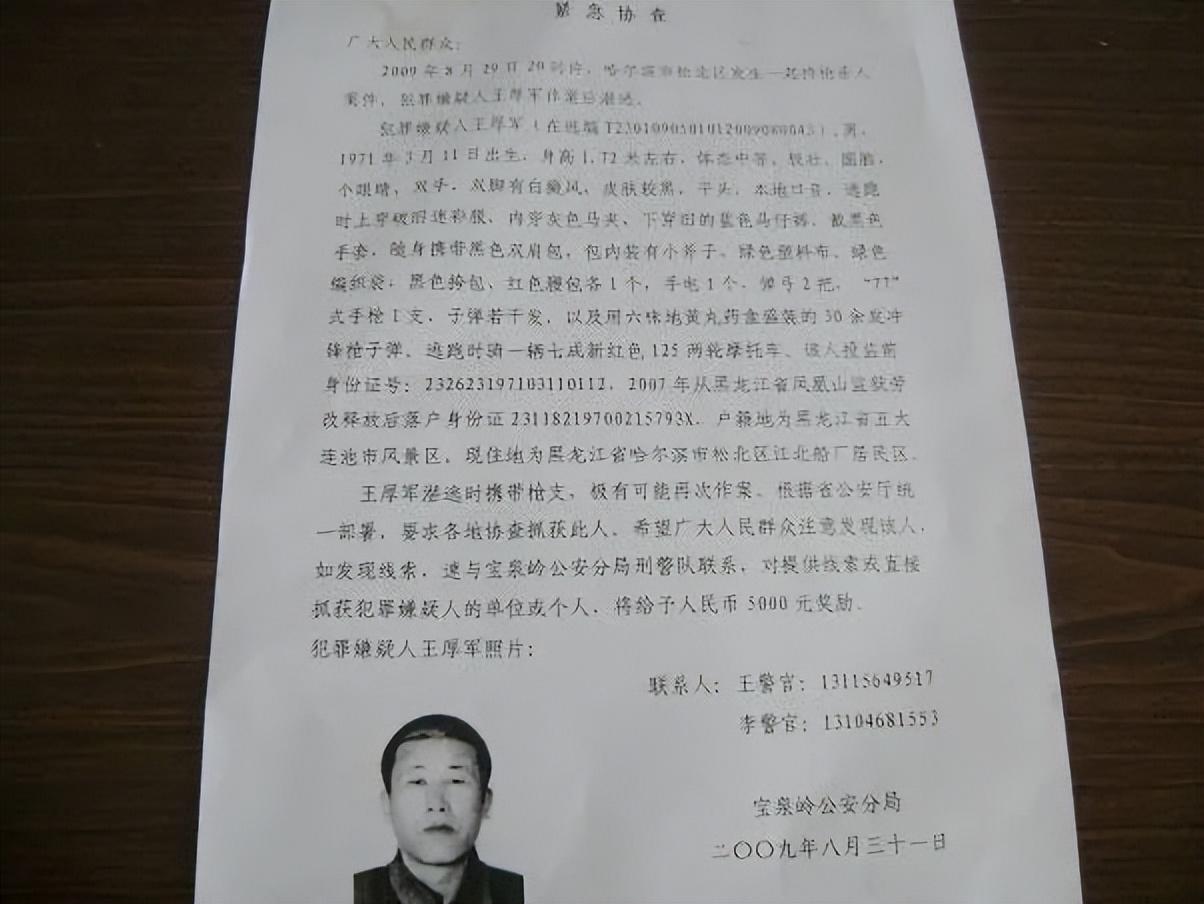 紧急协查
广大人民群众：
2009年8月29日20时许，哈尔滨市松北区发生一起持枪杀人
案件，犯罪嫌疑人王厚军作案后潜逃。
犯罪嫌疑人王厚军（在逃编T2301090501012009080043），男，
1971年3月11日出生，身高1.72米左右，体态中等、较壮、圆脸，
个眼睛，双手、双脚有白癜风、皮肤较黑，平头，本地口音，逃跑
时上穿破旧迷彩服、内穿灰色马夹、下穿旧的蓝色马仔裤，戴黑色
手套，随身携带黑色双肩包，包内装有小斧子、绿色塑料布、绿色
编织袋，黑色挎包、红色腰包各1个，手电1个，弹弓2把，“77”
式手枪1支，子弹若干发，以及用六味地黄丸药盒盛装的30余发冲
锋枪子弹，逃跑时骑一辆七成新红色125两轮摩托车。该人投监前
身份证号：232623197103110112，2007年从黑龙江省凤凰山监狱劳
改释放后落户身份证23118219700215793X，户籍地为黑龙江省五大
连池市风景区，现住地为黑龙江省哈尔滨市松北区江北船厂居民区。
王厚军潜逃时携带枪支，极有可能再次作案。根据省公安厅统
一部署，要求各地协查抓获此人。希望广大人民群众注意发现该人，
如发现线索，速与宝泉岭公安分局刑警队联系，对提供线索或直接
抓获犯罪嫌疑人的单位或个人，将给予人民币5000元奖励。
犯罪嫌疑人王厚军照片：
联系人：王警官：13115649517
李警官：13104681553
宝泉岭公安分局
二〇〇九年八月三十一日